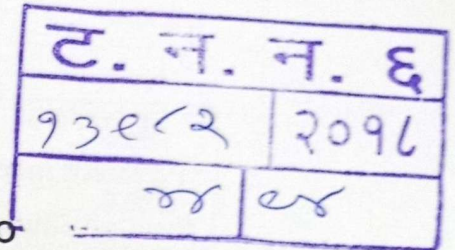 ट. न. न. ६
१३९८२ २०१८
४४ ९४